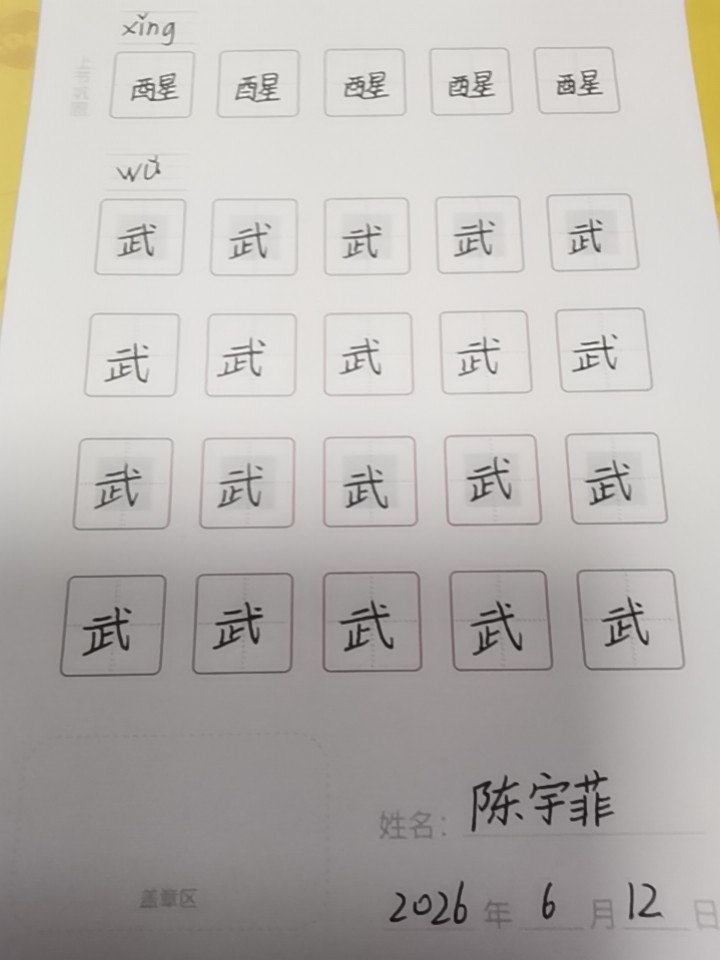 xǐng
醒 醒 醒 醒 醒
wǔ
武 武 武 武 武
武 武 武 武 武
武 武 武 武 武
武 武 武 武 武
姓名：陈宇菲
盖章区
2026年6月12日